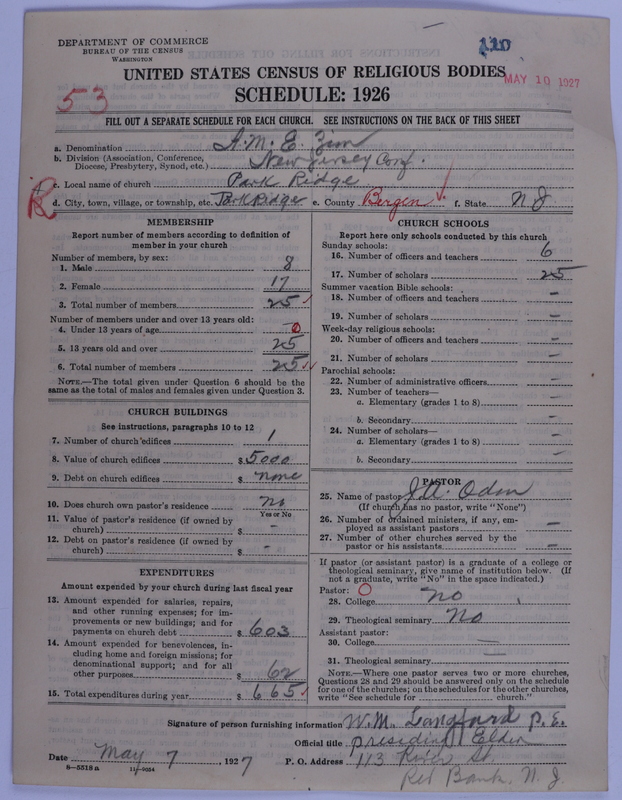 DEPARTMENT OF COMMERCE
BUREAU OF THE CENSUS
WASHINGTON
110
UNITED STATES CENSUS OF RELIGIOUS BODIES
MAY 10 1927
53
SCHEDULE: 1926
FILL OUT A SEPARATE SCHEDULE FOR EACH CHURCH. SEE INSTRUCTIONS ON THE BACK OF THIS SHEET
a. Denomination A. M. E. Zion
b. Division (Association, Conference, Diocese, Presbytery, Synod, etc.) New Jersey Conf.
c. Local name of church Park Ridge
d. City, town, village, or township, etc. Park Ridge e. County Bergen f. State N J
MEMBERSHIP
Report number of members according to definition of
member in your church
Number of members, by sex:
1. Male 8
2. Female 17
3. Total number of members 25
Number of members under and over 13 years old:
4. Under 13 years of age 0
5. 13 years old and over 25
6. Total number of members 25
NOTE.—The total given under Question 6 should be the
same as the total of males and females given under Question 3.
CHURCH BUILDINGS
See instructions, paragraphs 10 to 12
7. Number of church edifices 1
8. Value of church edifices $ 5000
9. Debt on church edifices $ none
10. Does church own pastor's residence no
Yes or No
11. Value of pastor's residence (if owned by
church) $ -
12. Debt on pastor's residence (if owned by
church) $ -
EXPENDITURES
Amount expended by your church during last fiscal year
13. Amount expended for salaries, repairs,
and other running expenses; for im-
provements or new buildings; and for
payments on church debt $ 603
14. Amount expended for benevolences, in-
cluding home and foreign missions; for
denominational support; and for all
other purposes $ 62
15. Total expenditures during year $ 665
CHURCH SCHOOLS
Report here only schools conducted by this church
Sunday schools:
16. Number of officers and teachers 6
17. Number of scholars 25
Summer vacation Bible schools:
18. Number of officers and teachers -
19. Number of scholars -
Week-day religious schools:
20. Number of officers and teachers -
21. Number of scholars -
Parochial schools:
22. Number of administrative officers -
23. Number of teachers—
a. Elementary (grades 1 to 8) -
b. Secondary -
24. Number of scholars—
a. Elementary (grades 1 to 8) -
b. Secondary -
PASTOR
25. Name of pastor J. A. Odom
(If church has no pastor, write "None")
26. Number of ordained ministers, if any, em-
ployed as assistant pastors -
27. Number of other churches served by the
pastor or his assistants -
If pastor (or assistant pastor) is a graduate of a college or
theological seminary, give name of institution below. (If
not a graduate, write "No" in the space indicated.)
Pastor: O
28. College no
29. Theological seminary No
Assistant pastor:
30. College -
31. Theological seminary -
NOTE.—Where one pastor serves two or more churches,
Questions 28 and 29 should be answered only on the schedule
for one of the churches; on the schedules for the other churches,
write "See schedule for church."
Signature of person furnishing information W. M. Langford P. E.
Official title presiding Elder
Date May 7, 1927 P. O. Address 113 River St.
8—5518a 11—9054
Red Bank, N. J.